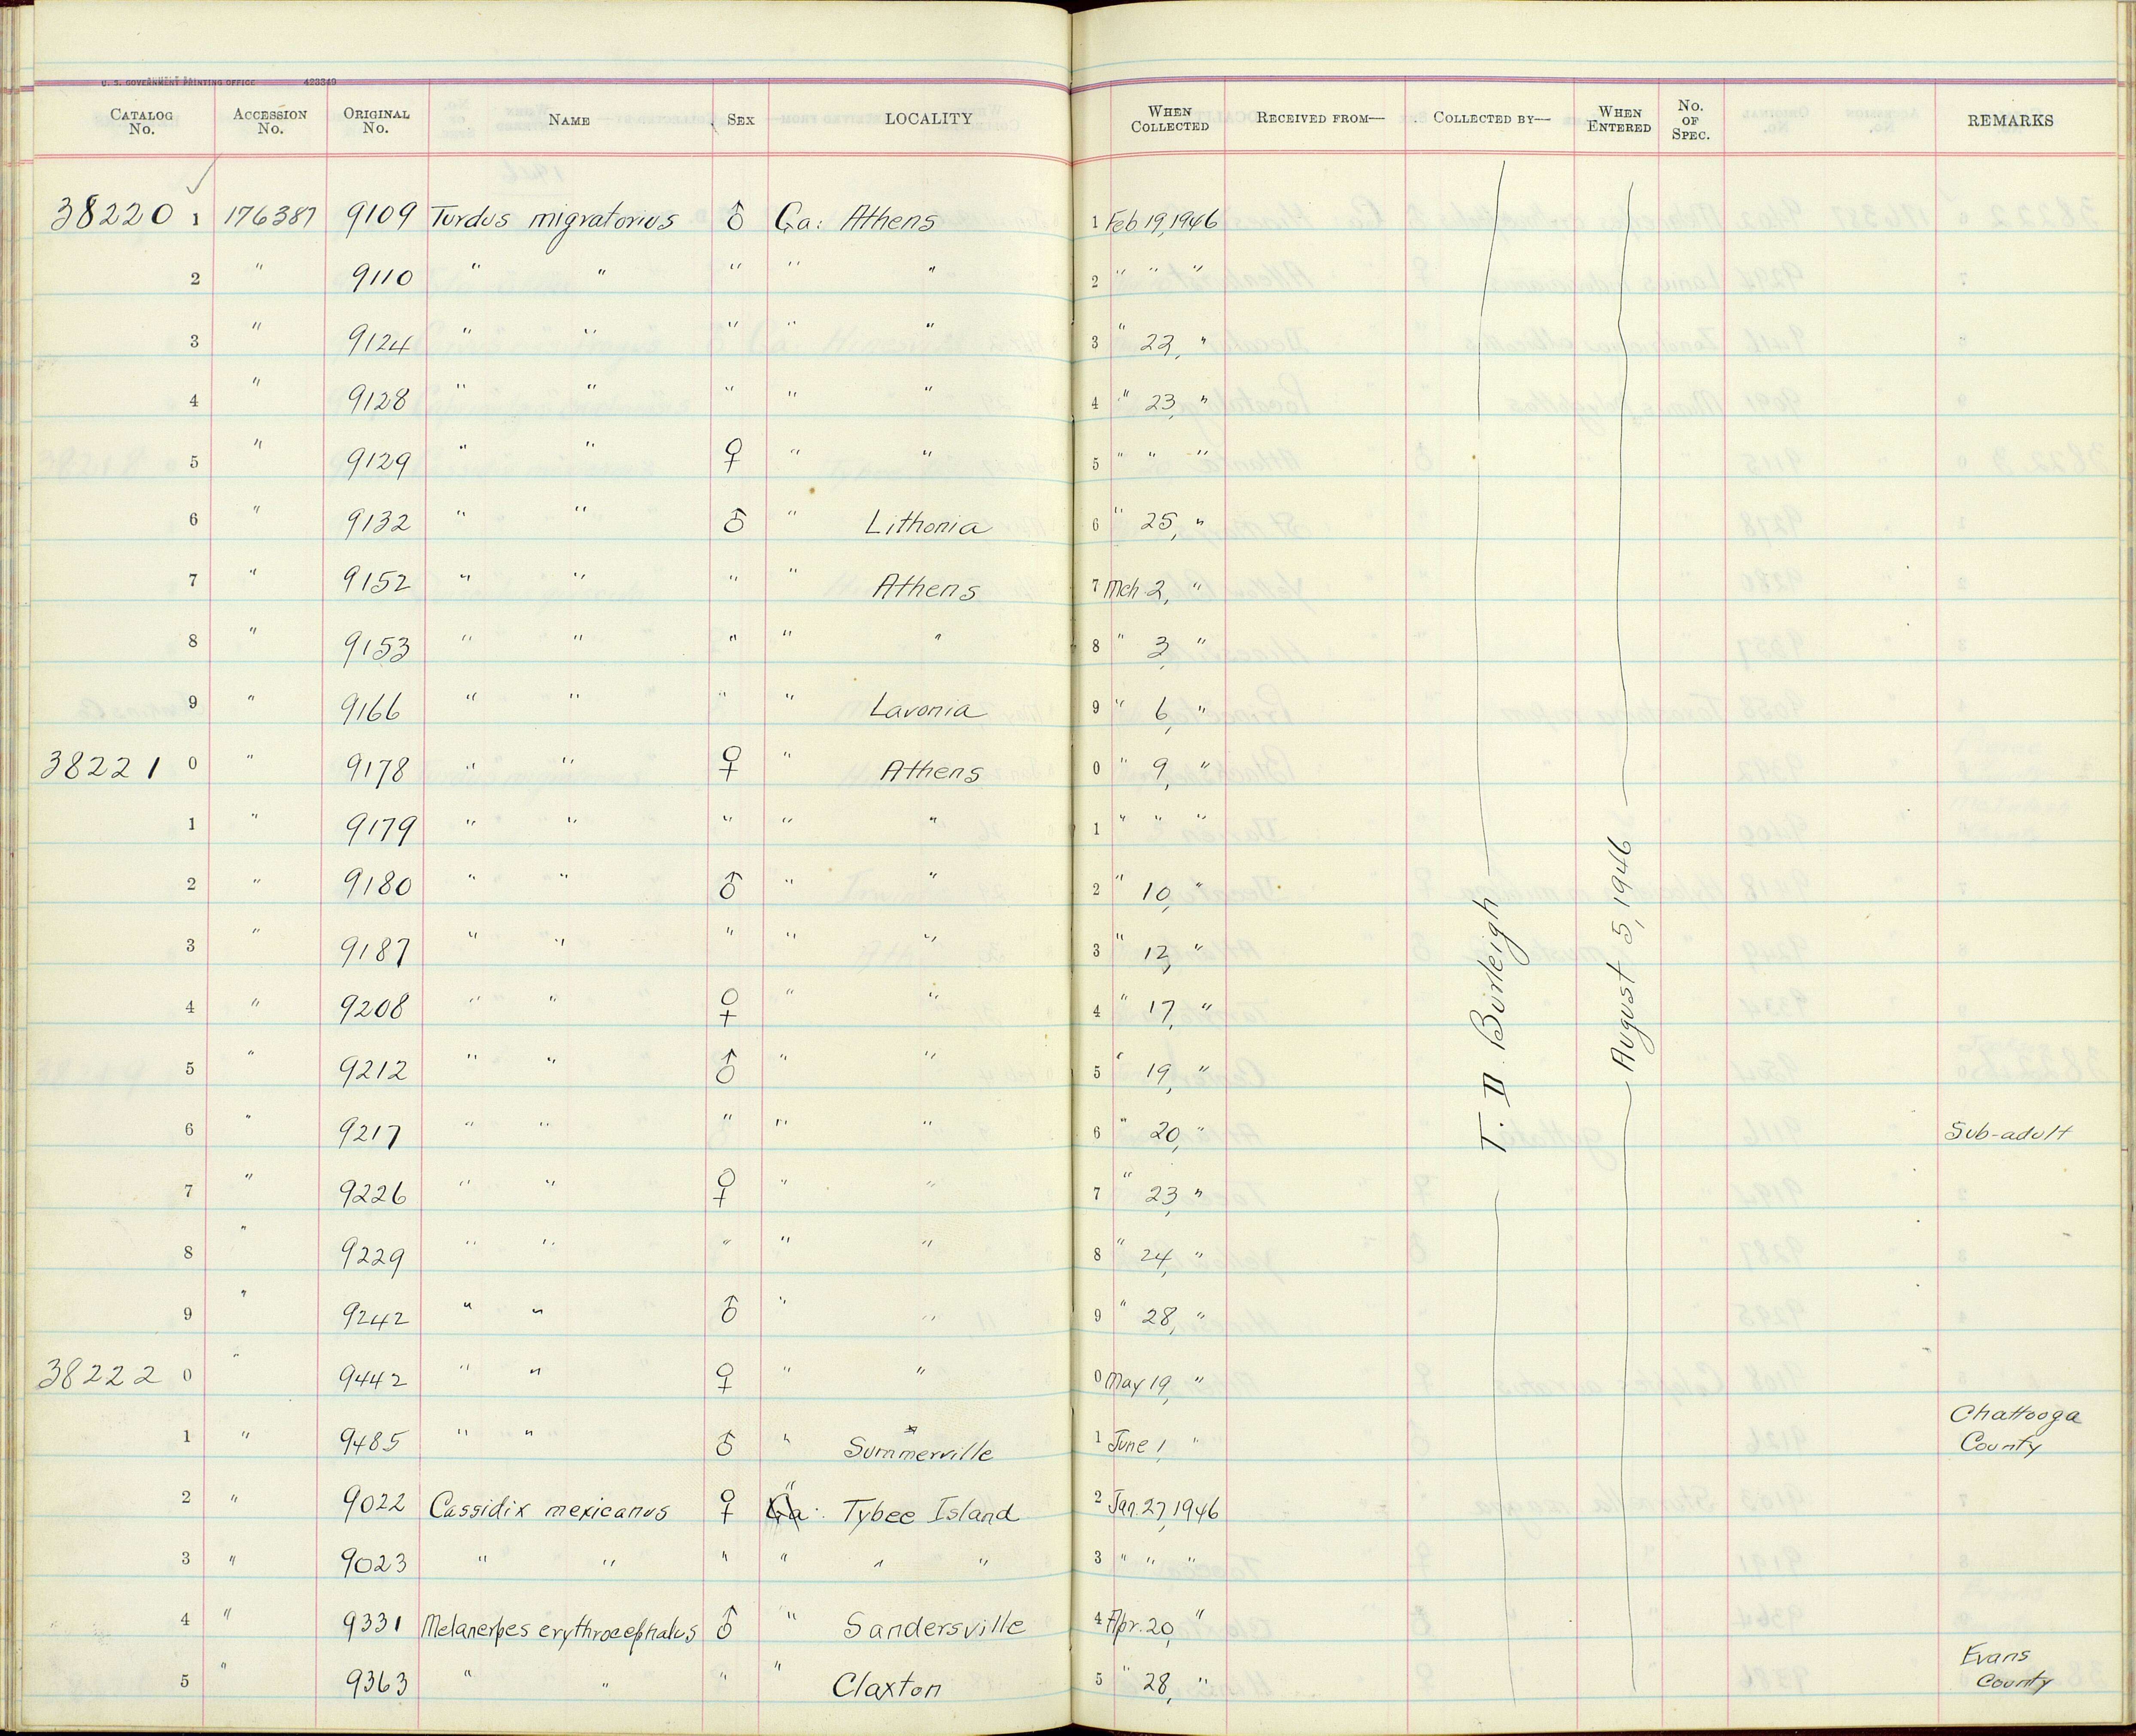 U. S. GOVERNMENT PRINTING OFFICE 423349
CATALOG No. ACCESSION No. ORIGINAL No. NAME SEX LOCALITY WHEN COLLECTED RECEIVED FROM— COLLECTED BY— WHEN ENTERED No. OF SPEC. REMARKS
38220 1 176387 9109 Turdus migratorius ♂ Ga: Athens 1 Feb 19, 1946
2 " 9110 " " " " " 2 " " "
3 " 9124 " " " " " 3 " 22, "
4 " 9128 " " " " " 4 " 23, "
5 " 9129 " " ♀ " " 5 " " "
6 " 9132 " " ♂ " Lithonia 6 " 25, "
7 " 9152 " " " " Athens 7 Mch 2, "
8 " 9153 " " " " " 8 " 3, "
9 " 9166 " " " " Lavonia 9 " 6, "
38221 0 " 9178 " " ♀ " Athens 0 " 9, "
1 " 9179 " " " " " 1 " " "
2 " 9180 " " ♂ " " 2 " 10, "
3 " 9187 " " " " " 3 " 12, "
4 " 9208 " " ♀ " " 4 " 17, "
5 " 9212 " " ♂ " " 5 " 19, "
6 " 9217 " " " " " 6 " 20, " Sub-adult
7 " 9226 " " ♀ " " 7 " 23, "
8 " 9229 " " " " " 8 " 24, "
9 " 9242 " " ♂ " " 9 " 28, "
38222 0 " 9442 " " ♀ " " 0 May 19, "
1 " 9485 " " ♂ " Summerville 1 June 1, " Chattooga County
2 " 9022 Cassidix mexicanus ♀ Ga: " Tybee Island 2 Jan. 27, 1946
3 " 9023 " " " " " " 3 " " "
4 " 9331 Melanerpes erythrocephalus ♂ " Sandersville 4 Apr. 20, "
5 " 9363 " " " " Claxton 5 " 28, " Evans County
T. D. Burleigh
August 5, 1946